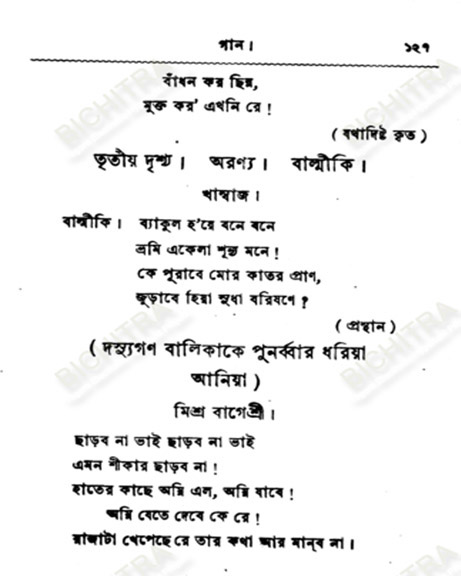 গান।
১২৭
বাঁধন কর ছিন্ন,
মুক্ত কর' এখনি রে!
( যথাদিষ্ট কৃত )
তৃতীয় দৃশ্য। অরণ্য। বাল্মীকি।
খাম্বাজ।
বাল্মীকি। ব্যাকুল হ'য়ে বনে বনে
ভ্রমি একেলা শূন্য মনে!
কে পূরাবে মোর কাতর প্রাণ,
জুড়াবে হিয়া সুধা বরিষণে?
( প্রস্থান )
( দস্যুগণ বালিকাকে পুনর্ব্বার ধরিয়া
আনিয়া )
মিশ্র বাগেশ্রী।
ছাড়ব না ভাই ছাড়ব না ভাই
এমন শীকার ছাড়ব না!
হাতের কাছে অম্নি এল, অম্নি যাবে!
অম্নি যেতে দেবে কে রে!
রাজাটা খেপেছে রে তার কথা আর মান্ব না।
BICHITRA
BICHITRA
BICHITRA
BICHITRA
BICHITRA
BICHITRA